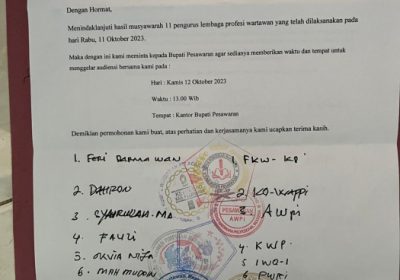 Dengan Hormat,
Menindaklanjuti hasil musyawarah 11 pengurus lembaga profesi wartawan yang telah dilaksanakan pada
hari Rabu, 11 Oktober 2023.
Maka dengan ini kami meminta kepada Bupati Pesawaran agar sedianya memberikan waktu dan tempat untuk
menggelar audiensi bersama kami pada :
Hari : Kamis 12 Oktober 2023
Waktu : 13.00 Wib
Tempat : Kantor Bupati Pesawaran
Demikian permohonan kami buat, atas perhatian dan kerjasamanya kami ucapkan terima kasih.
1. FERI DARMAWAN 1. FKW-KP
2. DAHRON 2.
3. SYAHRULAH.MA 3. AWPI
PESAWARAN
AWPI
4. FAUZI 4. KWP
5. 5. IWO-I
6. MAHMUDDIN 6. PWRI